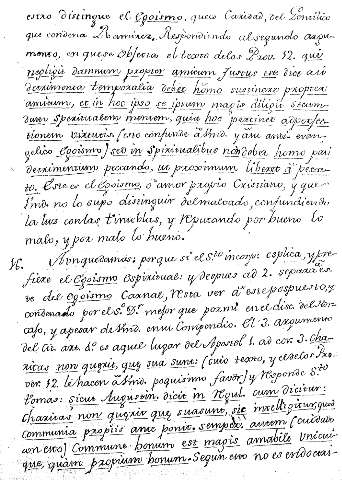 estro distingue el Egoismo, que es Caridad, del Concilio
que condena Ramirez. Respondiendo al segundo argu-
mento, en que se objetaba el texto de los Prov. 12. qui
negligit damnum propter amicum justus est dice asi
detrimenta temporalia debet homo sustinere propter
amicum, et in hoc ipso se ipsum magis diligit secun-
dum spiritualem mentem, quia hoc pertinet ad perfec-
tionem virtutis (esto confunde a Vmd. y a su anti-evan-
gelico Egoismo) sed in spiritualibus non debet homo pati
detrimentum peccando, ut proximum liberet a pecca-
to. Este es el Egoismo, o amor proprio Cristiano, y que
Vmd. no lo supo distinguir del malvado, confundiendo
la luz con las tinieblas, y reputando por bueno lo
malo, y por malo lo bueno.
16. Aun quedamos: porque si el Sto. incorp. explica, y pre-
fiere el Egoismo espiritual: y despues ad 2. separa es-
te del Egoismo Carnal, resta ver a este pospuesto, y
condenado por el S. Dr. mejor que por mi en el disc. del
y apesar de Vmd. en su Compendio. El 3. argumento
del Cit. art. 4.o es aquel lugar del Apostol 1. ad cor. 13. Cha-
ritas non quærit, quæ sua sunt: (cuio texto, y el de los Pro-
ver. 12. le hacen a Vmd. poquisimo favor) y responde Sto.
tomas: sicut Augustin. dicit in Regul. cum dicitur:
charitas non quærit quæ sua sunt, sic intelligitur, quod
communia propriis ante ponit. semper autem (cuidado
con esto) Commune bonum est magis amabile unicui-
que, quam proprium bonum. Segun esto no es